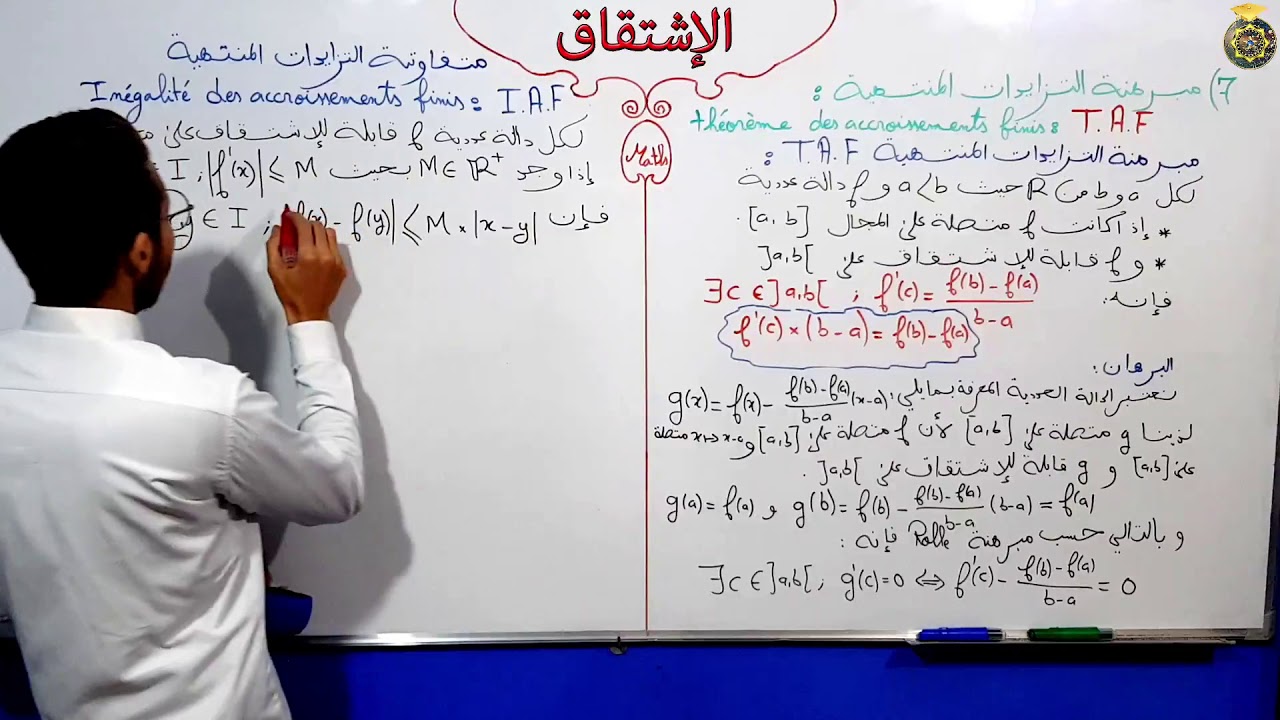 الإشتقاق
Maths
7) مبرهنة التزايدات المنتهية :
théorème des accroissements finis : T.A.F
مبرهنة التزايدات المنتهية T.A.F :
لكل a و b من ℝ حيث a < b و f دالة عددية
* إذا كانت f متصلة على المجال [a, b].
* و f قابلة للإشتقاق على ]a,b[
فإنه: ∃c ∈ ]a,b[ ; f'(c) = (f(b) - f(a)) / (b - a)
f'(c) × (b - a) = f(b) - f(a)
البرهان:
نعتبر الدالة العددية المعرفة بمايلي: g(x) = f(x) - (f(b) - f(a)) / (b - a) (x - a)
لدينا g متصلة على [a,b] لأن f متصلة على [a,b] و x ↦ x-a متصلة
على [a,b] و g قابلة للإشتقاق على ]a,b[.
g(a) = f(a) و g(b) = f(b) - (f(b) - f(a)) / (b - a) (b - a) = f(a)
و بالتالي حسب مبرهنة Rolle فإنه :
∃c ∈ ]a,b[ ; g'(c) = 0 ⇔ f'(c) - (f(b) - f(a)) / (b - a) = 0
متفاوتة التزايدات المنتهية
Inégalité des accroissements finis : I.A.F
لكل دالة عددية f قابلة للإشتقاق على
إذا وجد M ∈ ℝ⁺ بحيث I ; |f'(x)| ≤ M
فإن ∈ I ; f(x) - f(y)| ≤ M × |x - y|